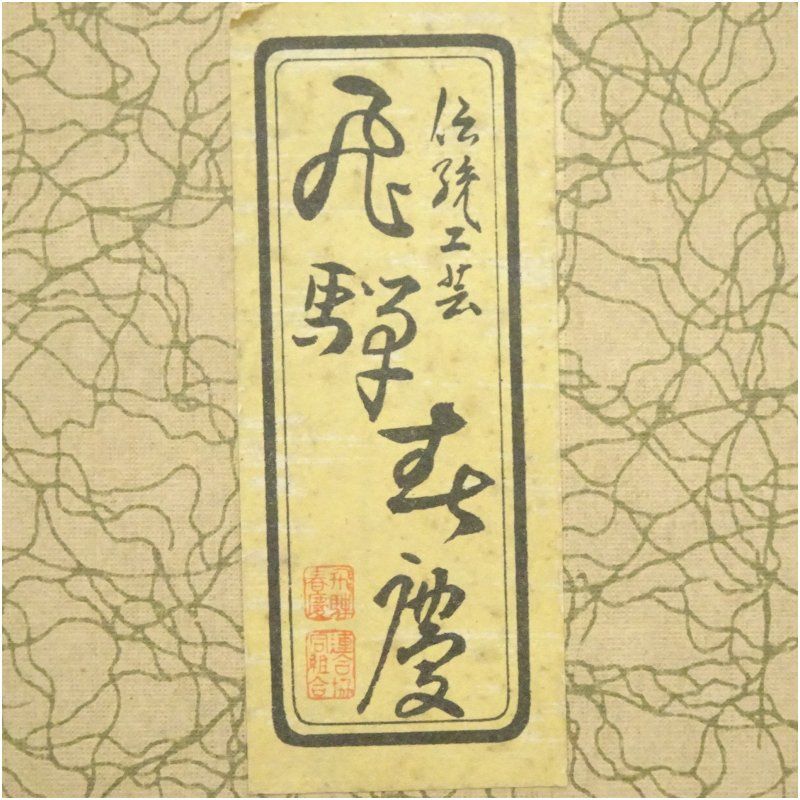 伝統工芸
飛騨春慶
飛騨春慶
連合協同組合